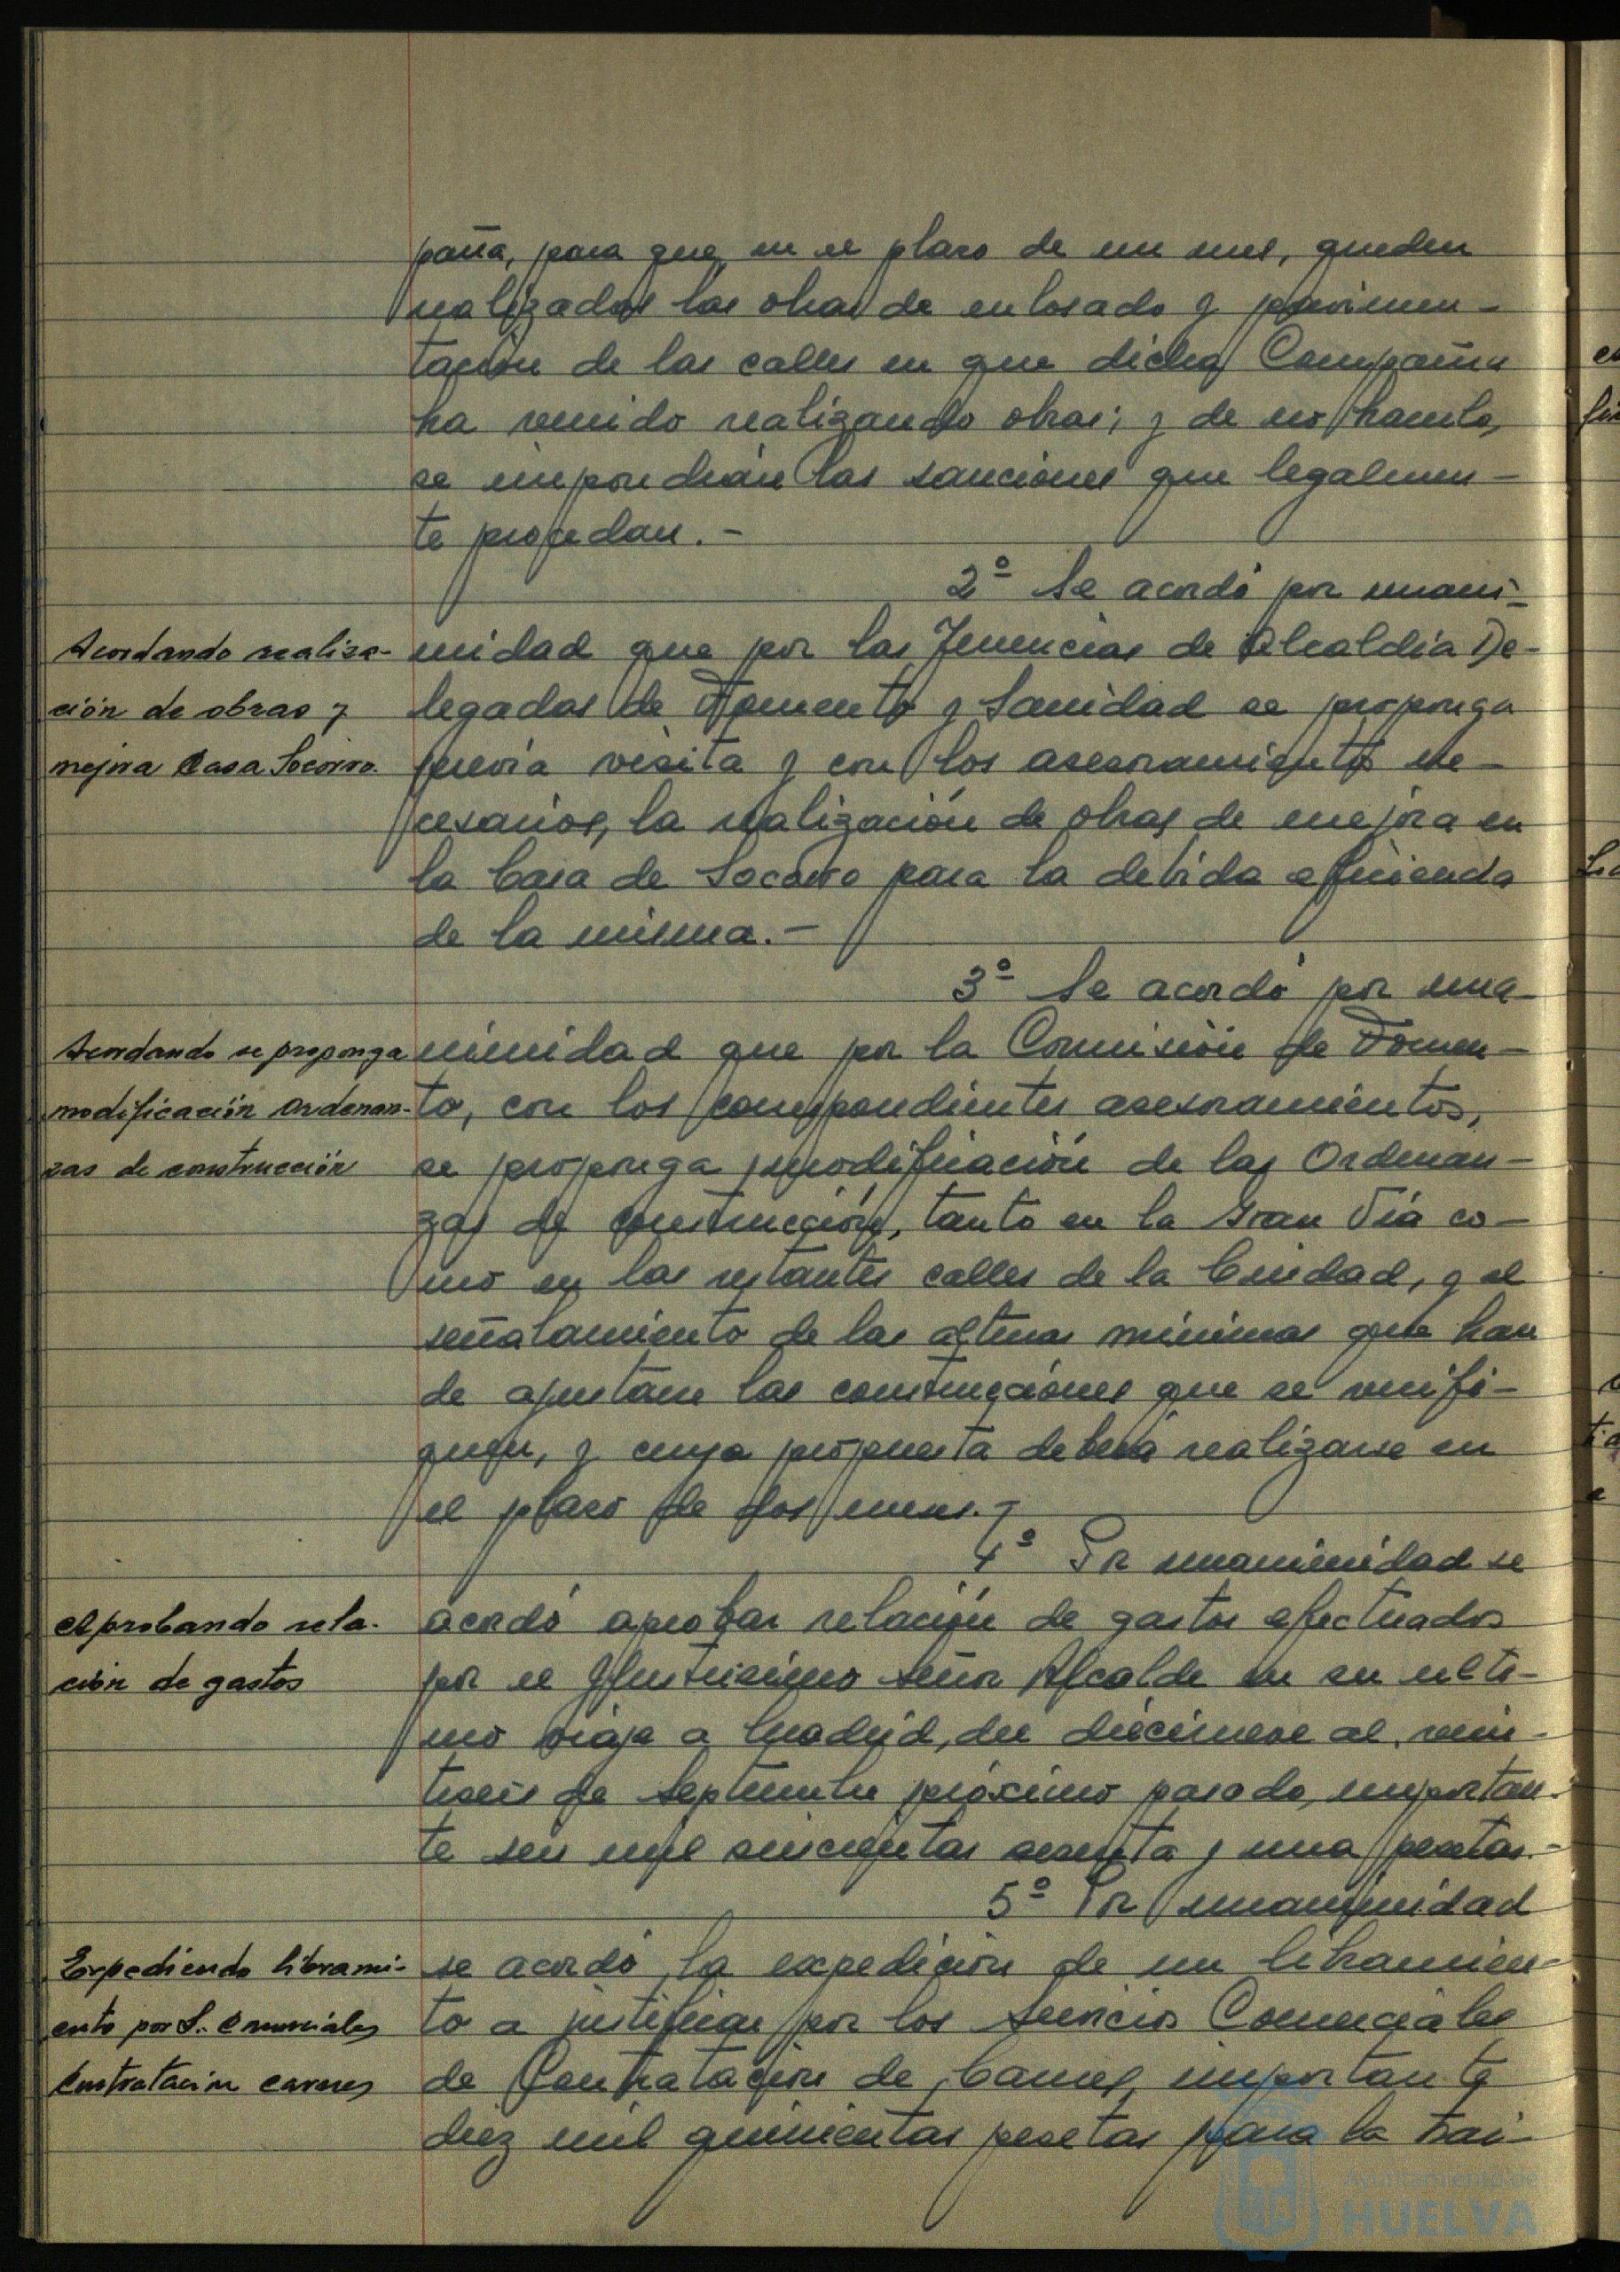 paña, para que en el plazo de un mes, queden
realizadas las obras de enlosado y pavimen-
tación de las calles en que dicha Compañia
ha venido realizando obras; y de no hacerlo,
se impondrán las sanciones que legalmen-
te procedan.-
2º Se acordó por unani-
Acordando realiza-
ción de obras y
mejora Casa Socorro.
midad que por las Tenencias de Alcaldía De-
legadas de Fomento y Sanidad se proponga
previa visita y con los asesoramientos ne-
cesarios, la realización de obras de mejora en
la Casa de Socorro para la debida eficiencia
de la misma.-
3º Se acordó por una-
Acordando se proponga
modificación Ordenan-
zas de construcción
nimidad que por la Comisión de Fomen-
to, con los correspondientes asesoramientos,
se proponga modificación de las Ordenan-
zas de construcción, tanto en la Gran Vía co-
mo en las restantes calles de la Ciudad, y el
señalamiento de las alturas mínimas que han
de ajustarse las construcciones que se verifi-
quen, y cuya propuesta deberá realizarse en
el plazo de dos meses.-
4º Por unanimidad se
Aprobando rela-
ción de gastos
acordó aprobar relación de gastos efectuados
por el Ilustrisimo señor Alcalde en su ulti-
mo viaje a Madrid, del diecinueve al vein-
tiseis de Septiembre próximo pasado, importan-
te seis mil sesenta y una pesetas.-
5º Por unanimidad
Expediendo librami-
ento por S. Comerciales
Contratación carnes
se acordó la expedición de un libramien-
to a justificar por los Servicios Comerciales
de Contratación de Carnes, importante
diez mil quinientas pesetas para la trai-
Ayuntamiento de
HUELVA